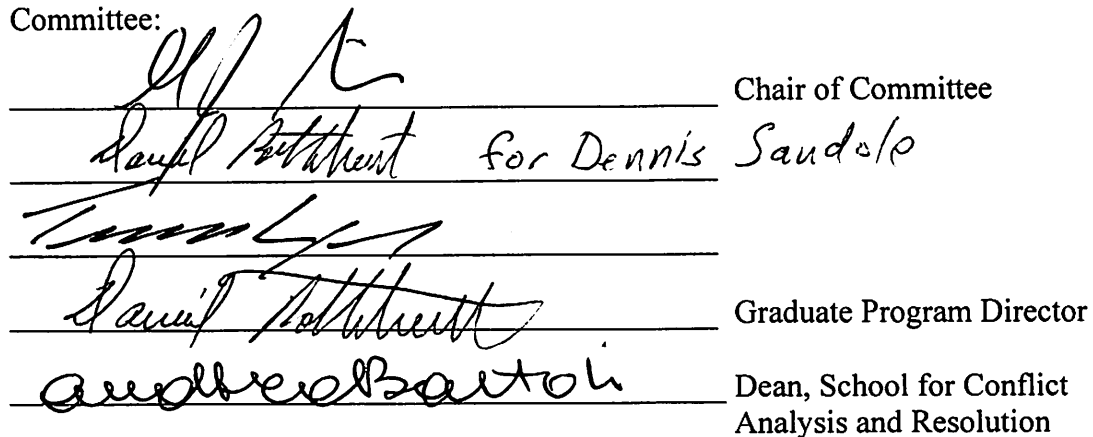 Committee:
Chair of Committee
Daniel Rothbart for Dennis Sandole
Daniel Rothbart
Graduate Program Director
Andrea Bartoli
Dean, School for Conflict
Analysis and Resolution